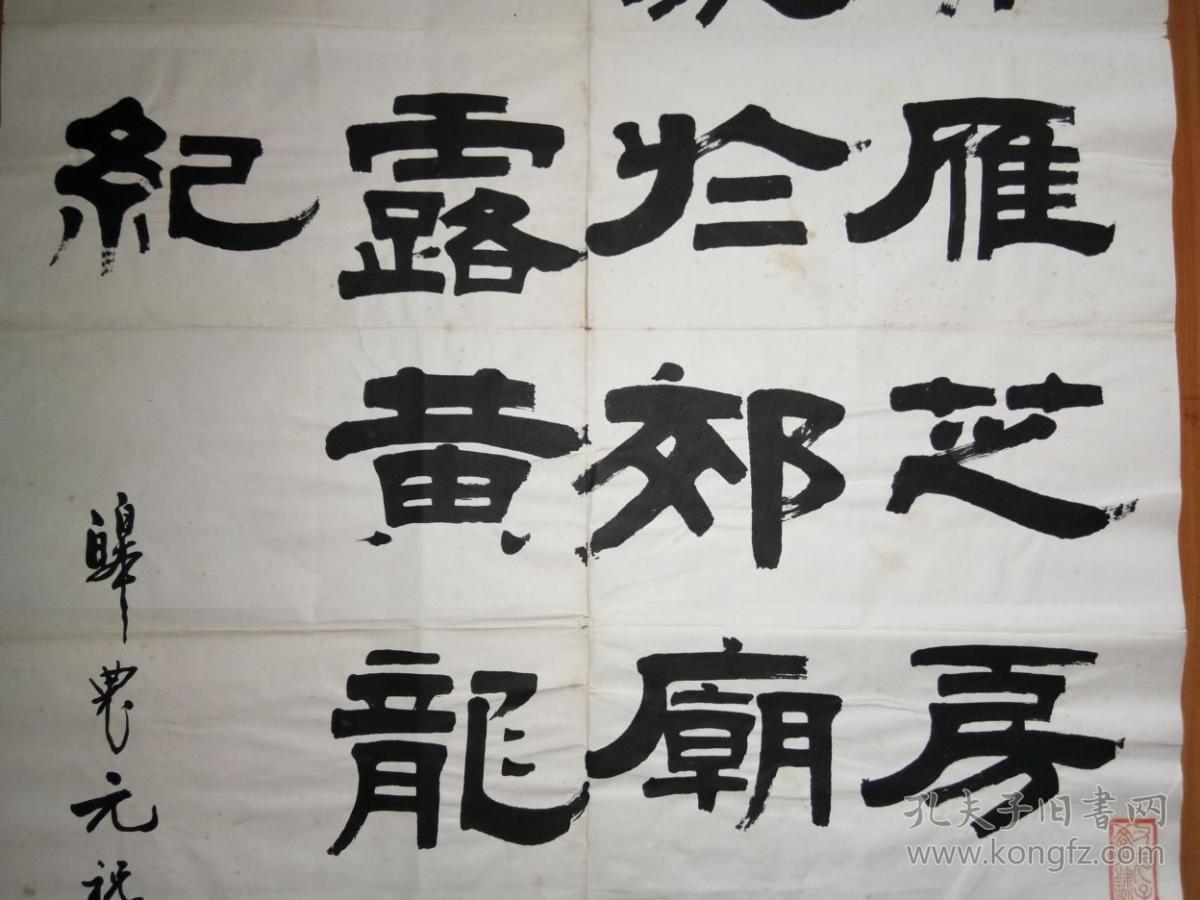 雁芝房
於郊廟
露黄龍
紀
皞農元
孔夫子旧書网
www.kongfz.com